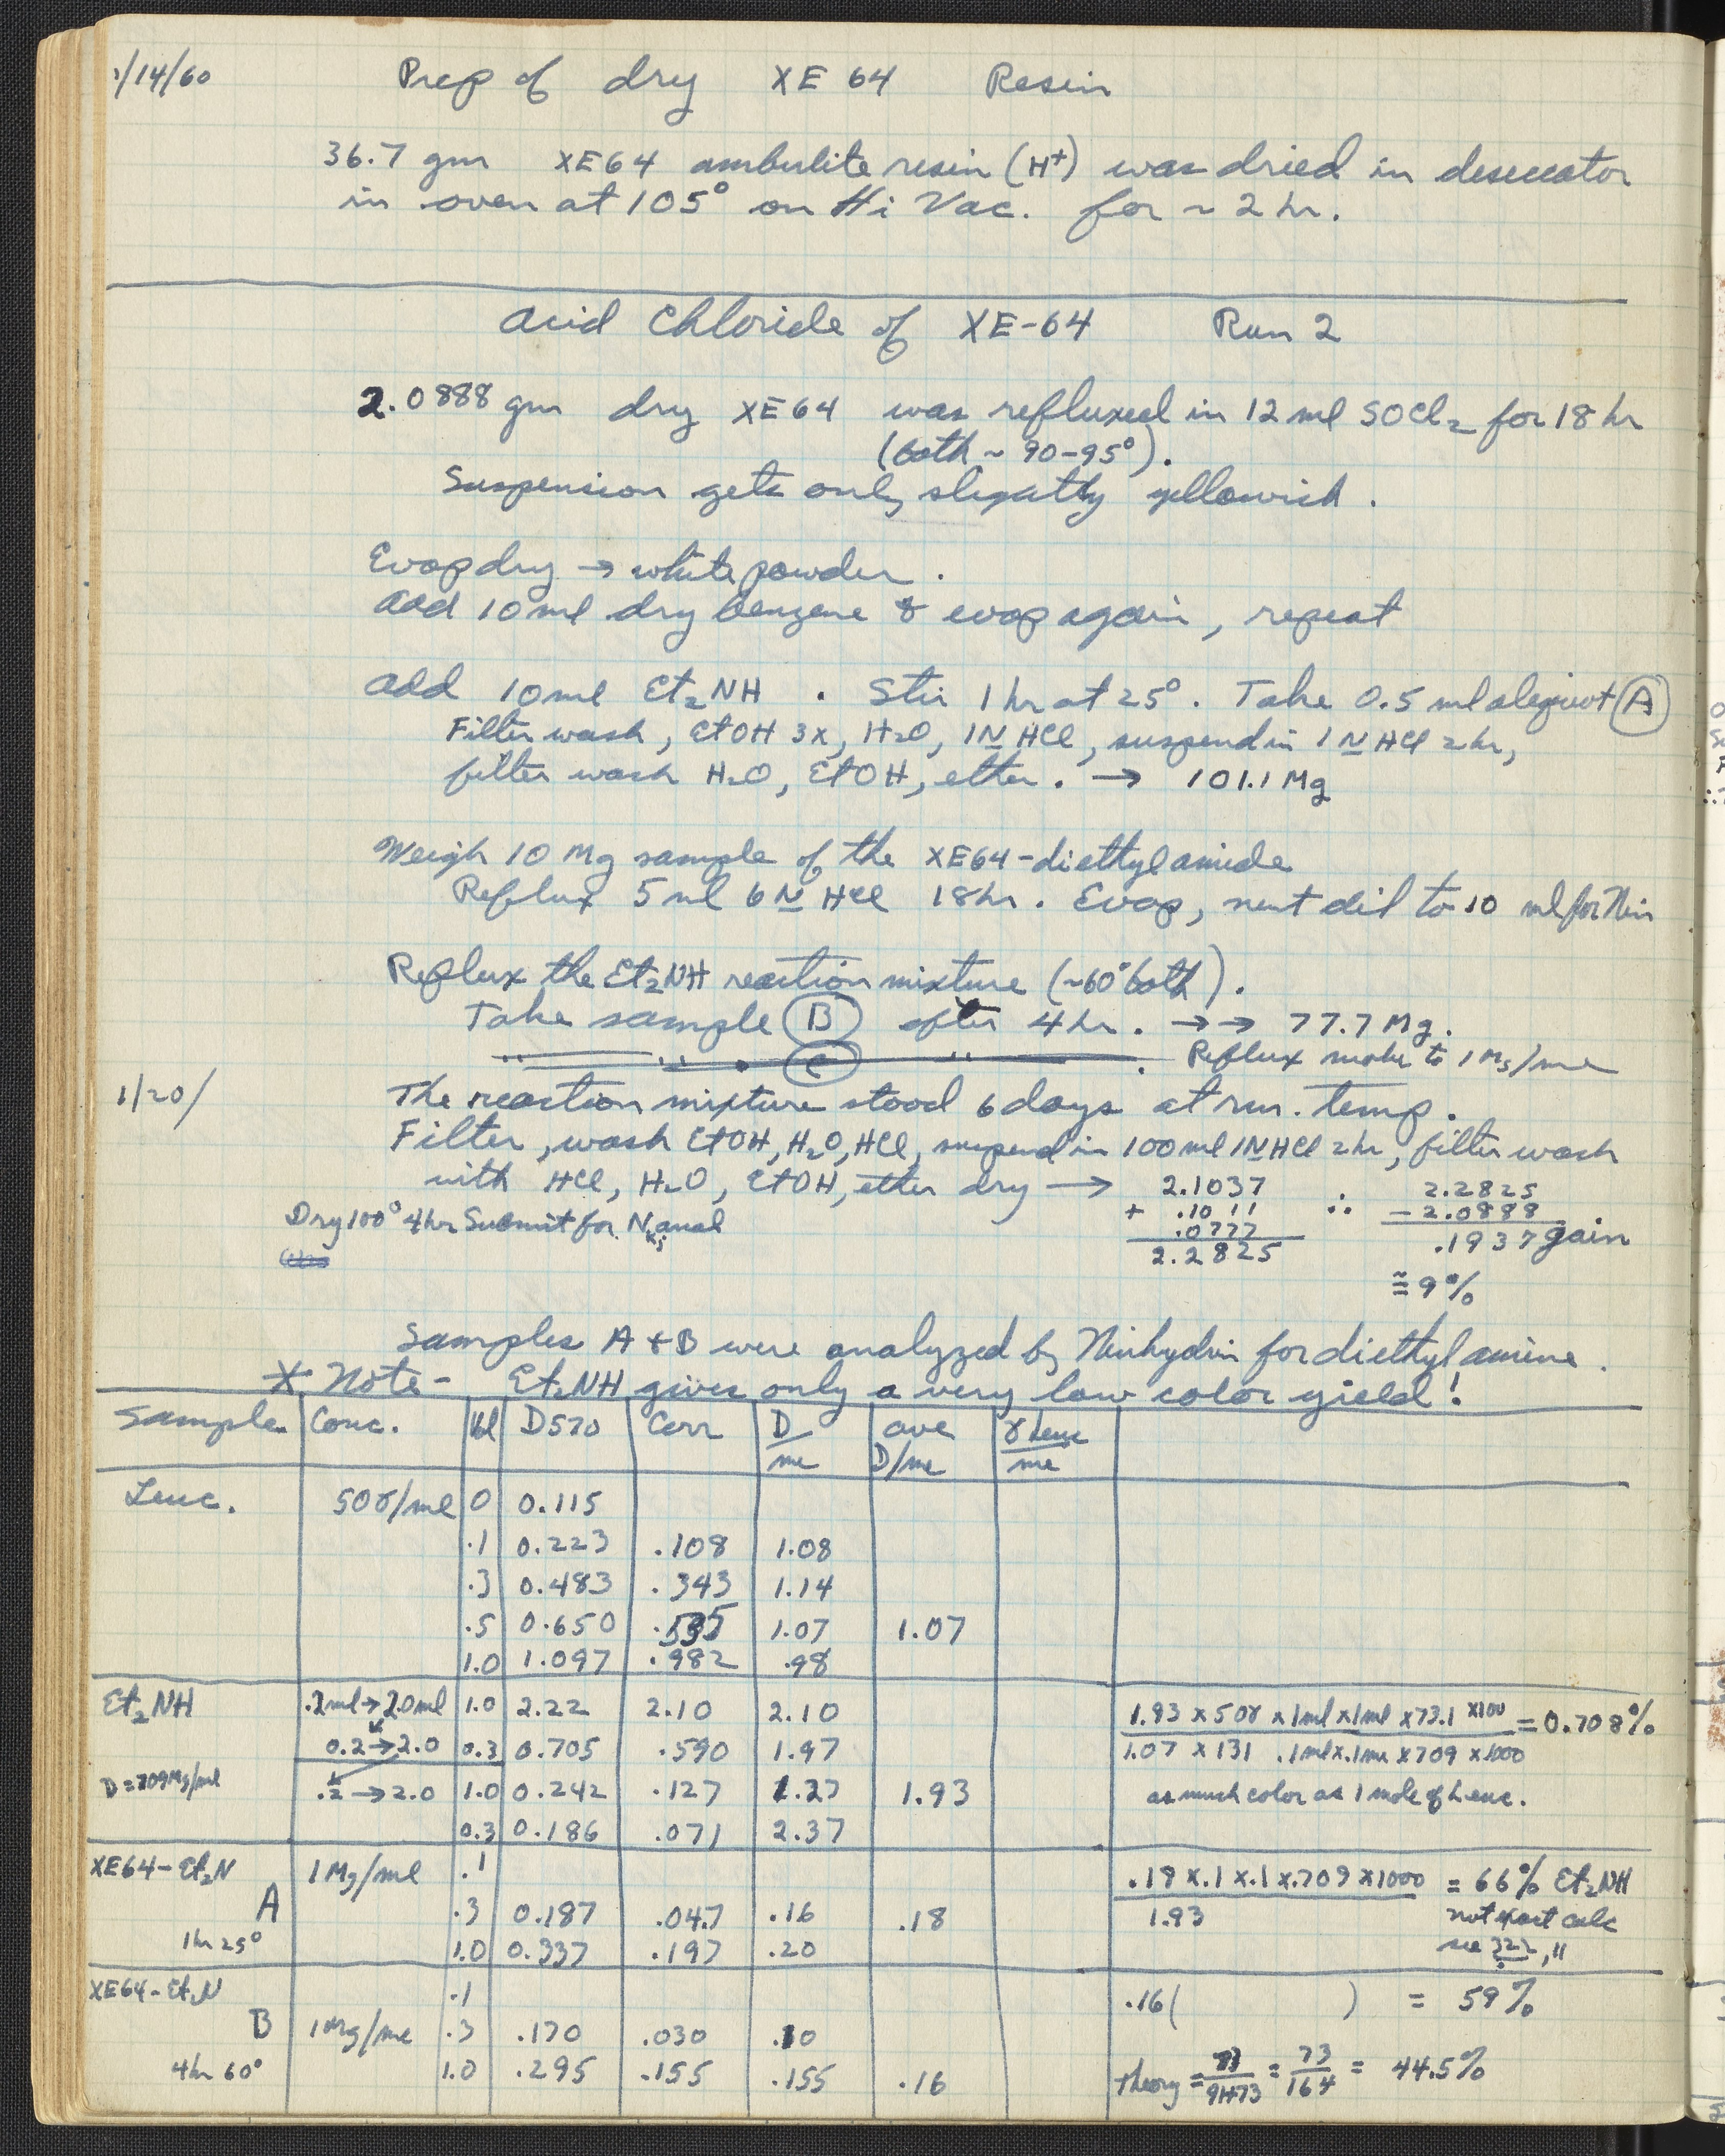 1/14/60 Prep of dry XE 64 Resin
36.7 gm XE64 ambulite resin (H+) was dried in desiccator
in oven at 105° on Hi Vac. for ~ 2 hr.
Acid Chloride of XE-64 Run 2
2.0888 gm dry XE64 was refluxed in 12 ml SOCl2 for 18 hr
(bath ~ 90-95°).
Suspension gets only slightly yellowish.
Evap dry → white powder.
Add 10 ml dry benzene & evap again, repeat
Add 10 ml Et2NH. Stir 1 hr at 25°. Take 0.5 ml aliquot A
Filter wash, EtOH 3x, H2O, 1N HCl, suspend in 1 N HCl 2 hr,
filter wash H2O, EtOH, ether. → 101.1 Mg
Weigh 10 Mg sample of the XE64-diethylamide
Reflux 5 ml 6 N HCl 18 hr. Evap, neut dil to 10 ml for Nin
Reflux the Et2NH reaction mixture (~60° bath).
Take sample B after 4 hr. →→ 77.7 Mg.
C Reflux make to 1 Mg/ml
1/20/ The reaction mixture stood 6 days at rm. temp.
Filter, wash EtOH, H2O, HCl, suspend in 100 ml 1N HCl 2 hr, filter wash
with HCl, H2O, EtOH, ether dry → 2.1037 ∴ 2.2825
+ .1011 - 2.0888
Dry 100° 4 hr Submit for N Kj anal .0777 .1937 gain
2.2825
≅ 9%
Samples A + B were analyzed by Ninhydrin for diethylamine.
* Note - Et2NH gives only a very low color yield!
Sample Conc. Vol D570 Corr D/ml ave D/ml γ leuc/ml
Leuc. 50γ/ml 0 0.115
.1 0.223 .108 1.08
.3 0.483 .343 1.14
.5 0.650 .535 1.07 1.07
1.0 1.097 .982 .98
Et2NH .2ml→20ml 1.0 2.22 2.10 2.10 1.93 x 50γ x 1ml x 1ml x 73.1 x100 = 0.708%
0.2→2.0 0.3 0.705 .590 1.97 1.07 x 131 .1ml x .1ml x 709 x 1000
D = 709Mg/ml .2→2.0 1.0 0.242 .127 1.27 1.93 as much color as 1 mole of Leuc.
0.3 0.186 .071 2.37
XE64-Et2N 1 Mg/ml .1 .18 x .1 x .1 x .709 x 1000 = 66% Et2NH
A .3 0.187 .047 .16 .18 1.93 not exact calc
1 hr 25° 1.0 0.337 .197 .20 see
XE64-Et2N .1 .16 ( ) = 59%
B 1Mg/ml .3 .170 .030 .10
4 hr 60° 1.0 .295 .155 .155 .16 Theory = 73/91+73 = 73/164 = 44.5%